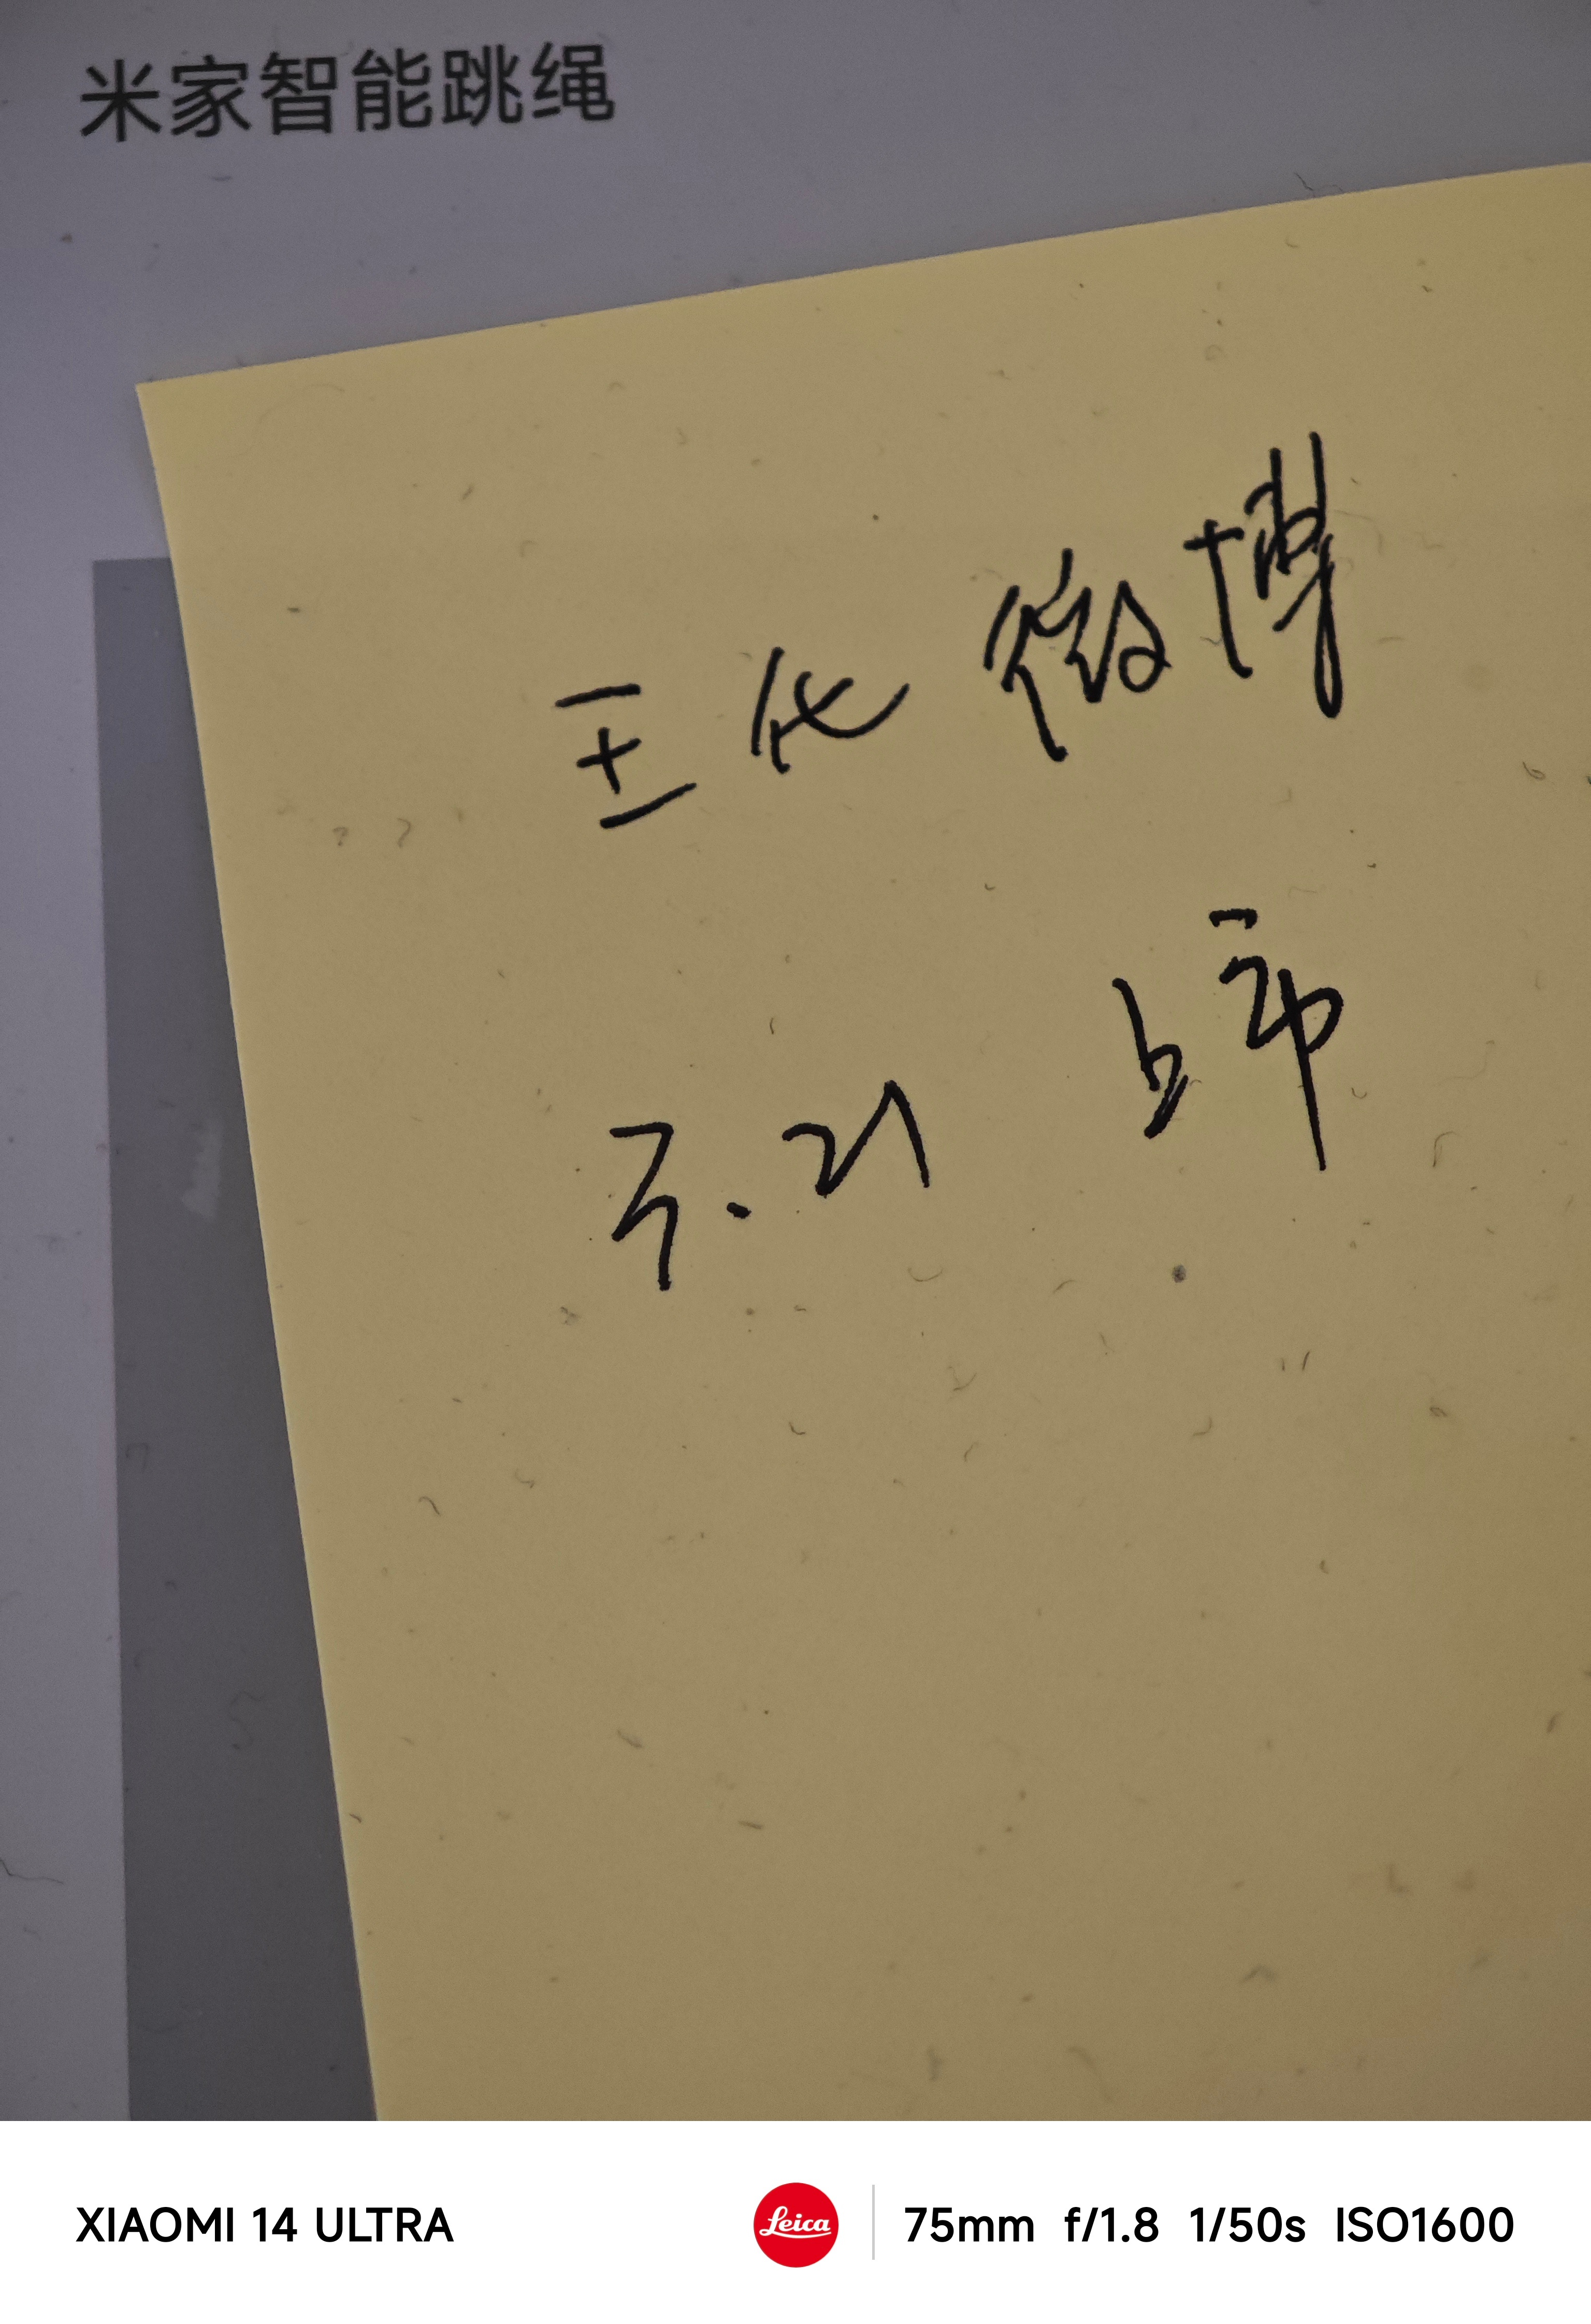 米家智能跳绳
王化微博
3.21 占帝
XIAOMI 14 ULTRA
Leica
75mm f/1.8 1/50s ISO1600